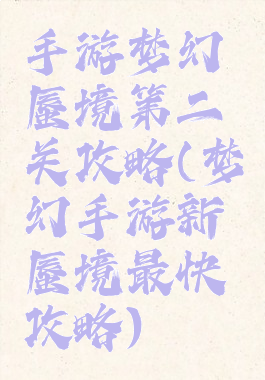 手游梦幻
蜃境第二
关攻略(梦
幻手游新
蜃境最快
攻略)